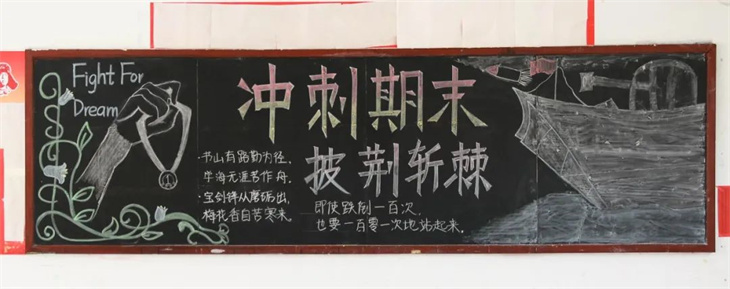 Fight For
Dream
冲刺期末
披荆斩棘
·书山有路勤为径,
学海无涯苦作舟。
·宝剑锋从磨砺出,
梅花香自苦寒来。
即使跌倒一百次,
也要一百零一次地站起来。